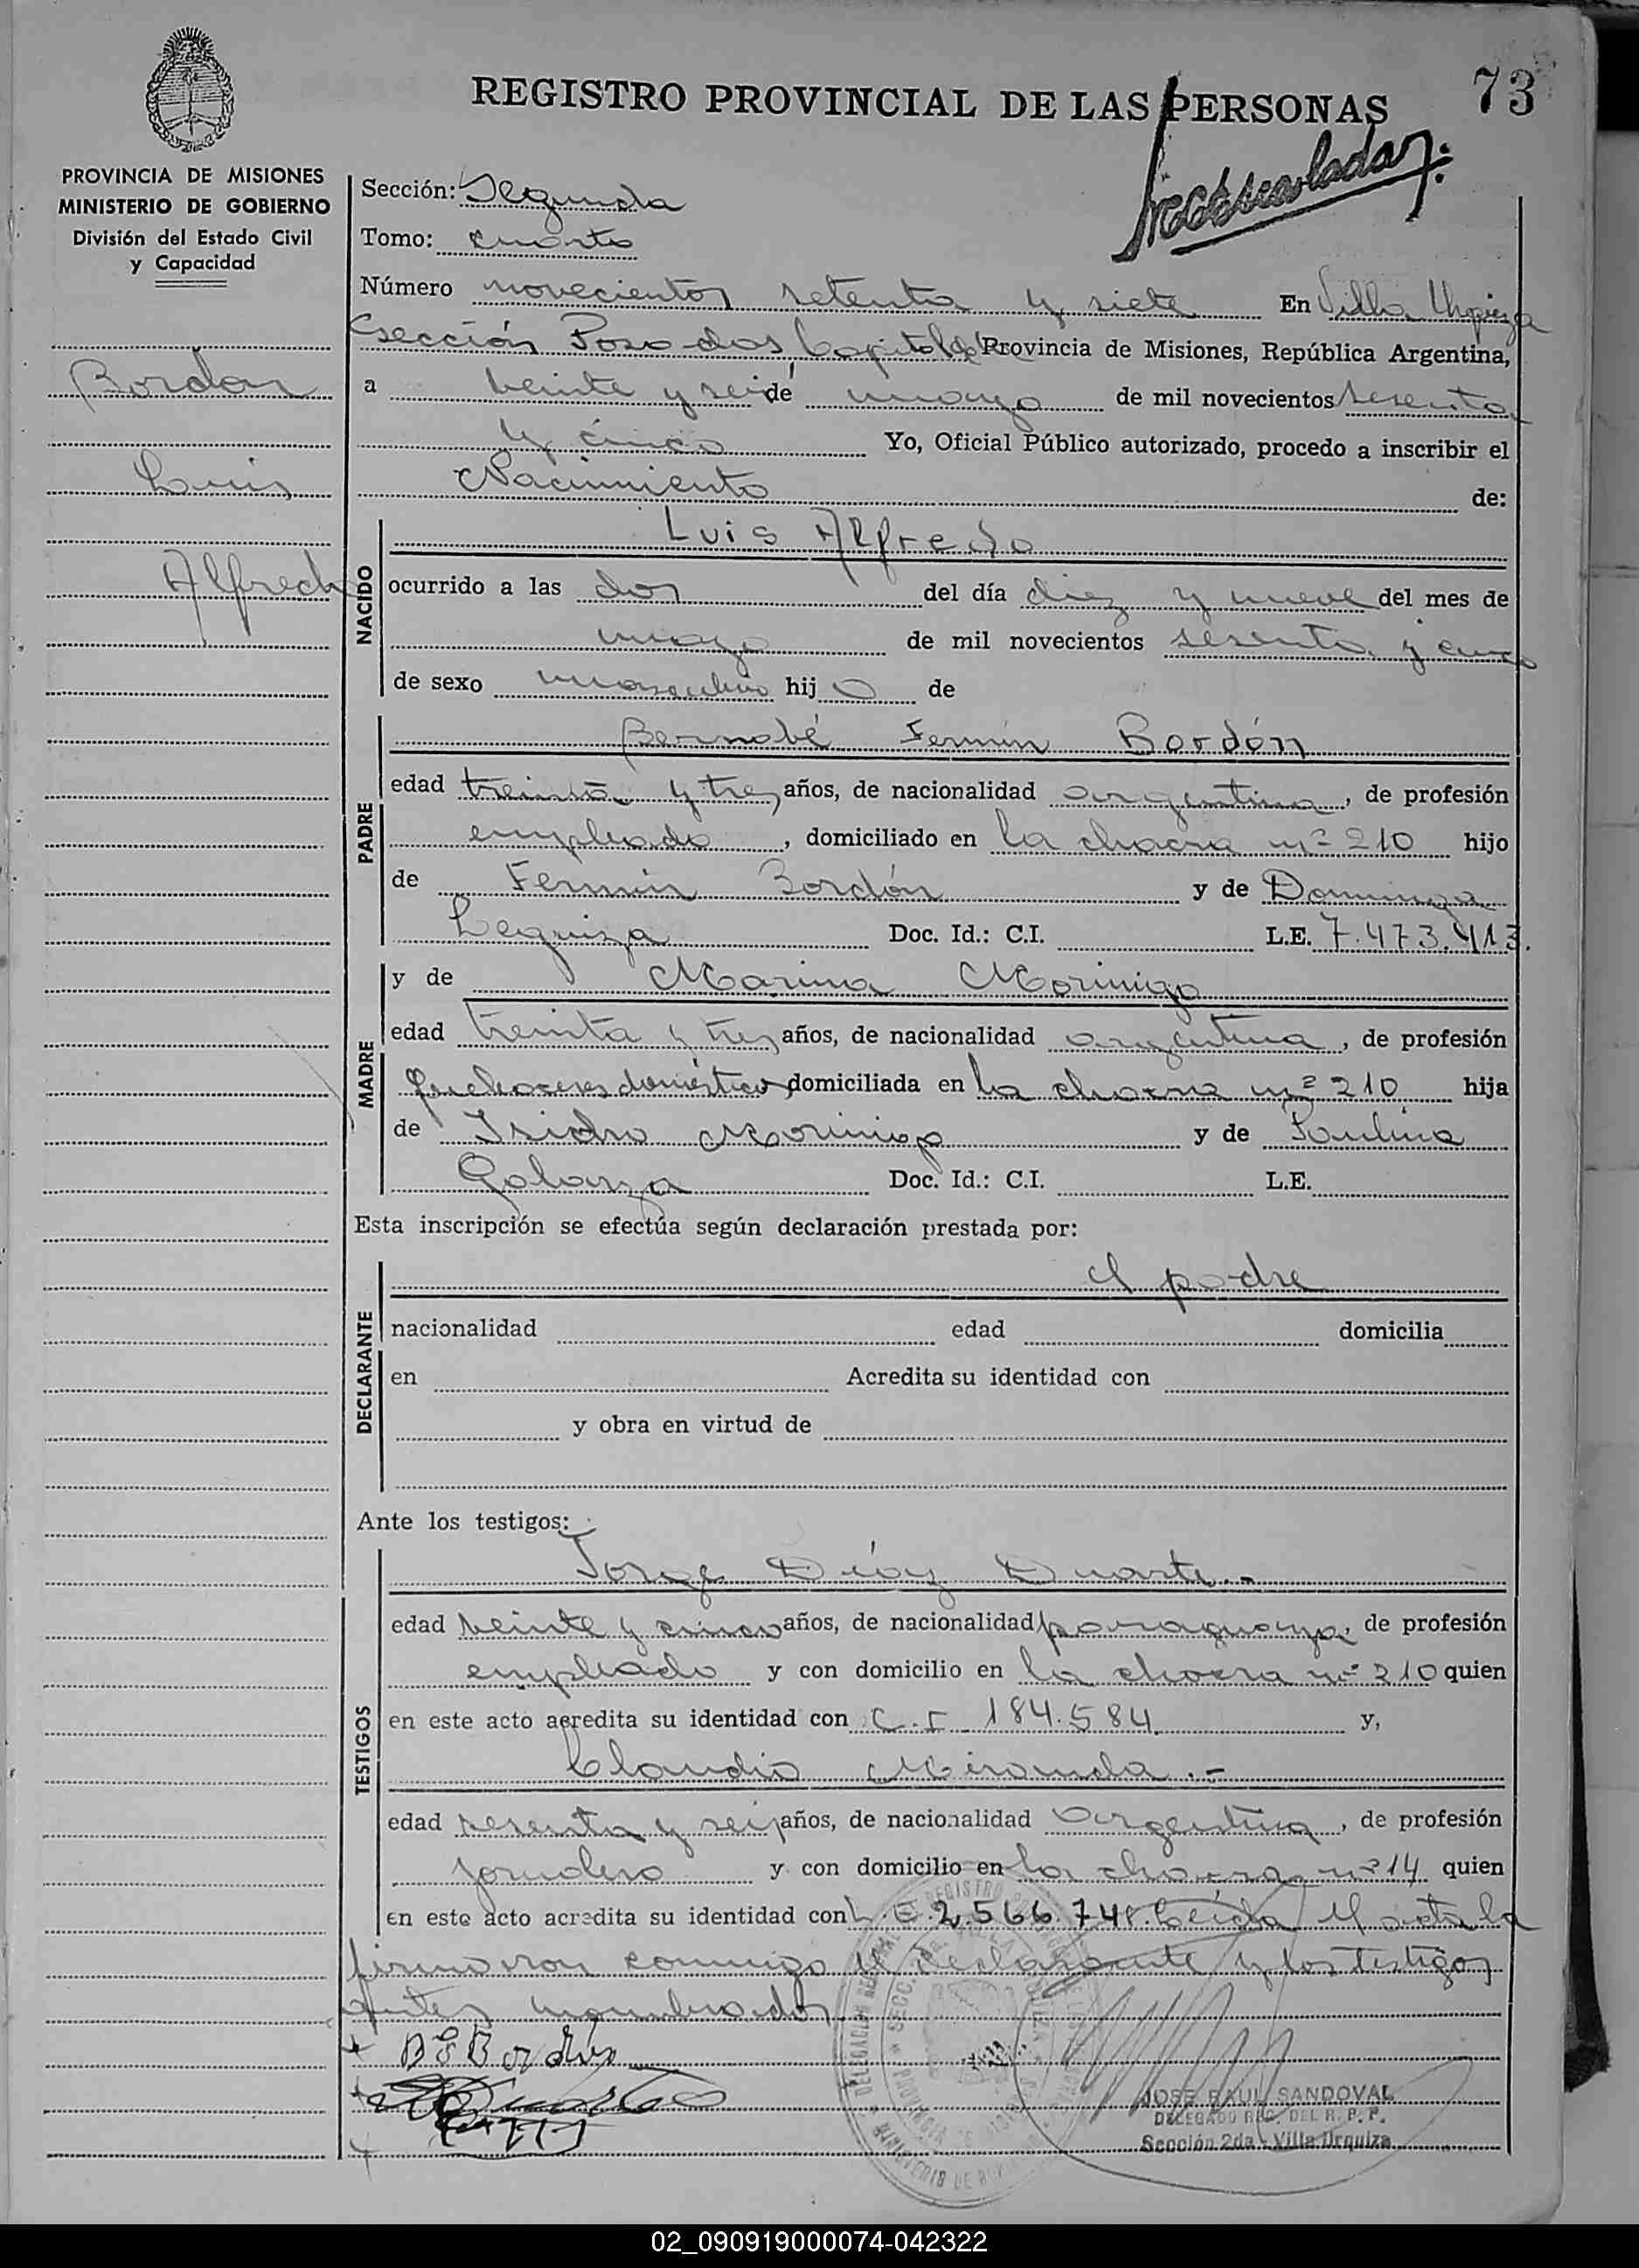 73
REGISTRO PROVINCIAL DE LAS PERSONAS
PROVINCIA DE MISIONES
MINISTERIO DE GOBIERNO
División del Estado Civil
y Capacidad
Bordón
Luis
Alfredo
Sección: Segunda
Tomo: cuarto
Número novecientos setenta y siete En Villa Urquiza
Sección Posadas Capital de Provincia de Misiones, República Argentina,
a veinte y seis de mayo de mil novecientos sesenta
y cinco Yo, Oficial Público autorizado, procedo a inscribir el
Nacimiento de:
NACIDO
Luis Alfredo
ocurrido a las dos del día diez y nueve del mes de
mayo de mil novecientos sesenta y cinco
de sexo masculino hijo de
PADRE
Bernabé Fermín Bordón
edad treinta y tres años, de nacionalidad argentina, de profesión
empleado, domiciliado en la chacra nº 210 hijo
de Fermín Bordón y de Dominga
Leguiza Doc. Id.: C.I. L.E. 7.473.413.
MADRE
y de Marina Morinigo
edad treinta y tres años, de nacionalidad argentina, de profesión
quehaceres domésticos domiciliada en la chacra nº 210 hija
de Isidro Morinigo y de Paulina
Galarza Doc. Id.: C.I. L.E.
Esta inscripción se efectúa según declaración prestada por:
DECLARANTE
el padre
nacionalidad edad domicilia
en Acredita su identidad con
y obra en virtud de
Ante los testigos:
TESTIGOS
Jorge Díaz Duarte.-
edad veinte y cinco años, de nacionalidad paraguaya, de profesión
empleado y con domicilio en la chacra nº 210 quien
en este acto acredita su identidad con C.I 184.584. y,
Claudio Miranda.-
edad sesenta y seis años, de nacionalidad argentina, de profesión
jornalero y con domicilio en la chacra nº 14 quien
en este acto acredita su identidad con L.E. 2.566.741. Leída el acta la
firmaron conmigo el declarante y los testigos
antes nombrados
B F Bordón
JOSE RAUL SANDOVAL
DELEGADO REG. DEL R. P. P.
Sección 2da - Villa Urquiza
02_090919000074-042322